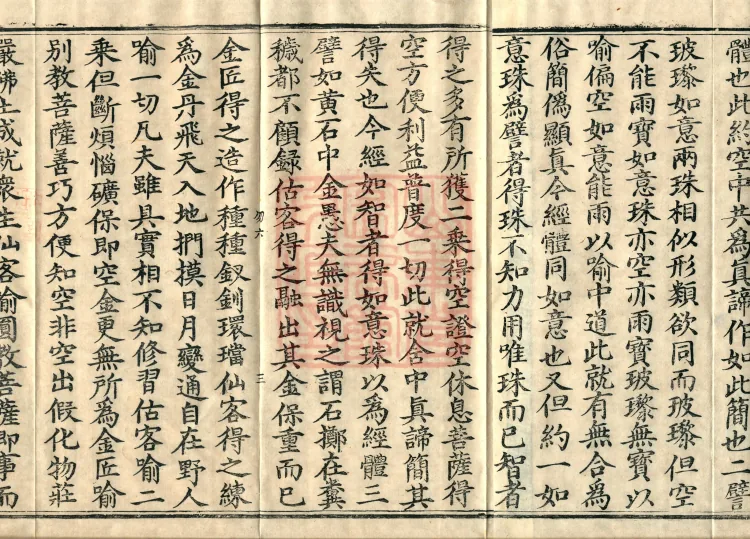 體也此經空中共為真諦作如此簡也二譬
玻瓈如意兩珠相似形類欲同而玻瓈但空
不能雨寶如意珠亦空亦雨寶玻瓈無寶以
喻偏空如意能雨以喻中道此就有無合為
俗簡偽顯真今經體同如意也又但約一如
意珠為譬者得珠不知力用唯珠而已智者
得之多有所獲二乘得空證空休息菩薩得
空方便利益普度一切此就含中真諦簡其
得失也今經如智者得如意珠以為經體三
譬如黃石中金愚夫無識視之謂石擲在糞
穢都不顧録估客得之融出其金保重而已
勿六
三
金匠得之造作種種釵釧環璫仙客得之練
為金丹飛天入地捫摸日月變通自在野人
喻一切凡夫雖具實相不知修習估客喻二
乘但斷煩惱礦保即空金更無所為金匠喻
別教菩薩善巧方便知空非空出假化物莊
嚴佛土成就衆生仙客喻圓教菩薩即事而